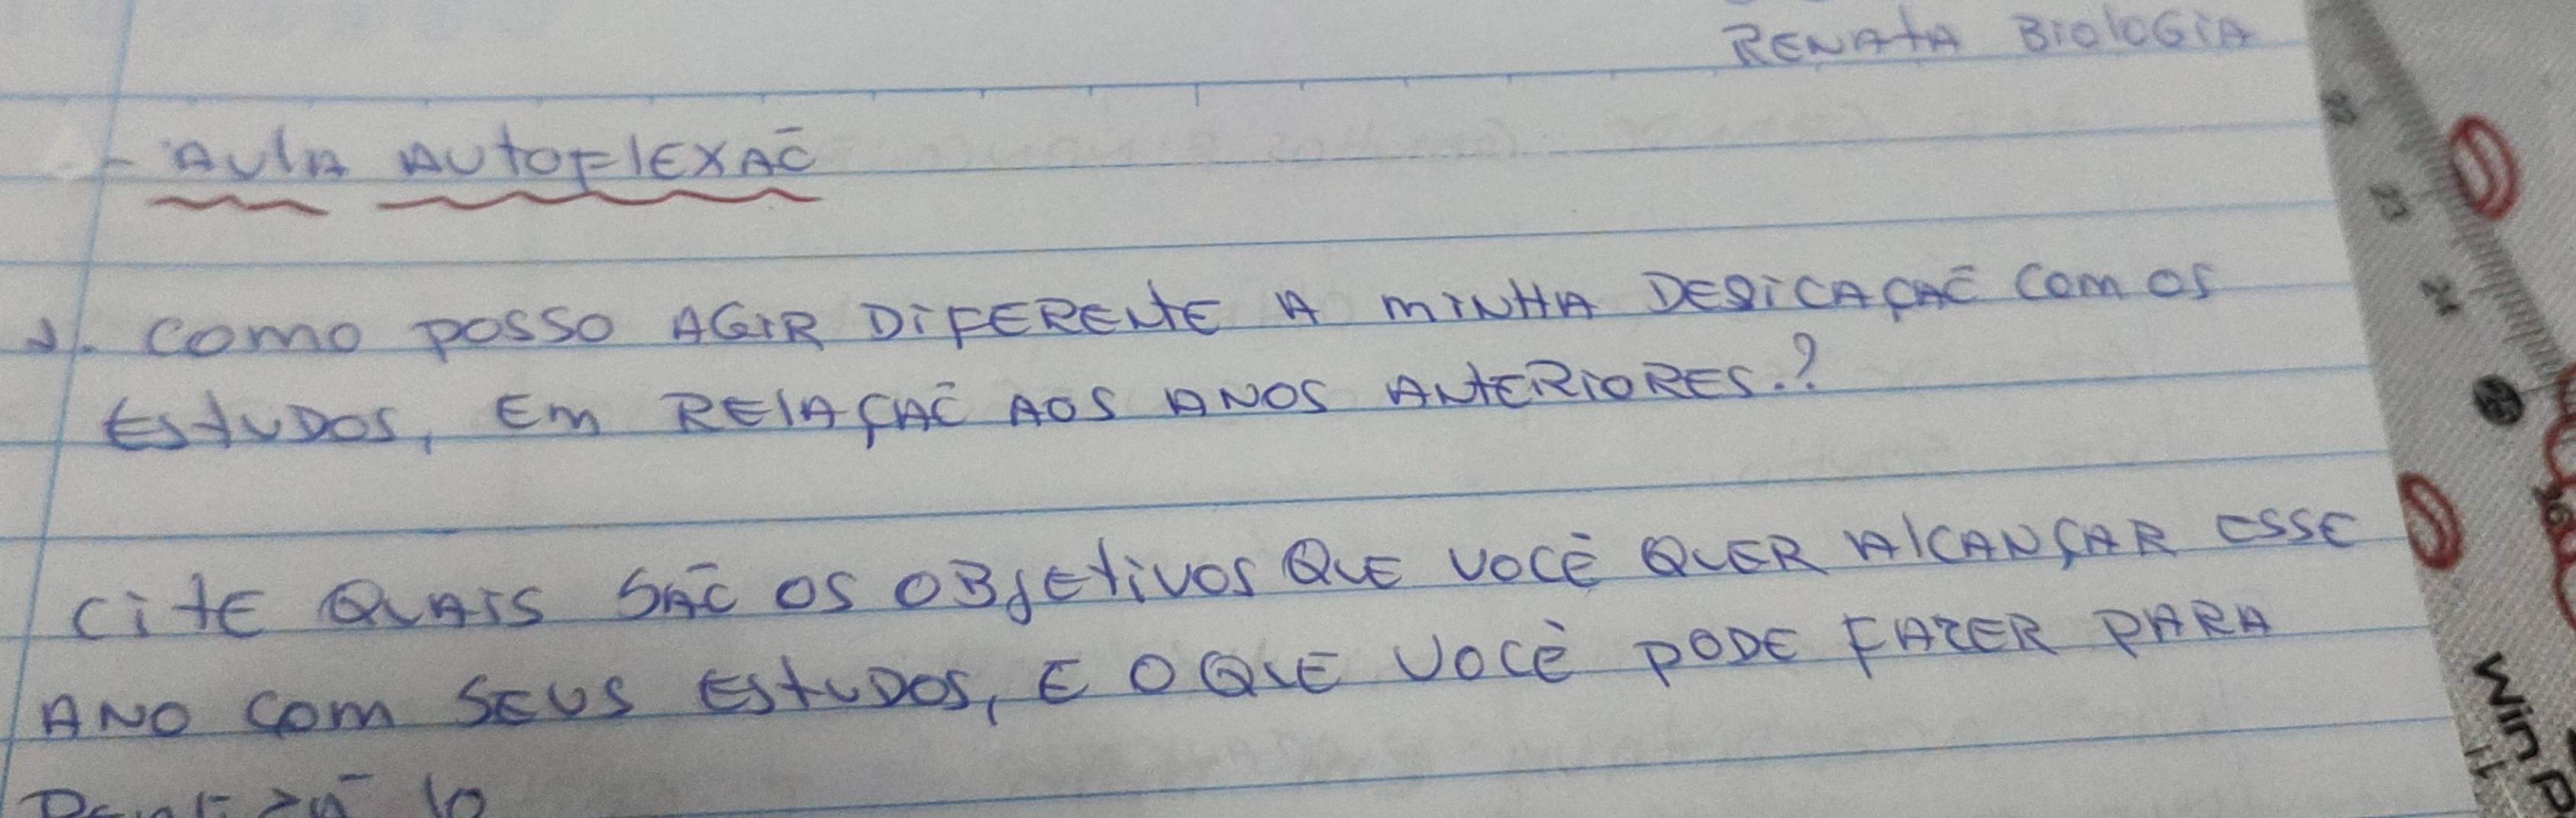 RENATA BIOLOGIA
- AULA AUTOFLEXAÕ
1. COMO POSSO AGIR DIFERENTE A MINHA DEDICAÇAÕ COM OS
ESTUDOS, EM RELAÇAÕ AOS ANOS ANTERIORES.?
CITE QUAIS SAÕ OS OBJETIVOS QUE VOCÊ QUER ALCANÇAR ESSE
ANO COM SEUS ESTUDOS, E O QUE VOCÊ PODE FAZER PARA
22
23
24
25
Win P